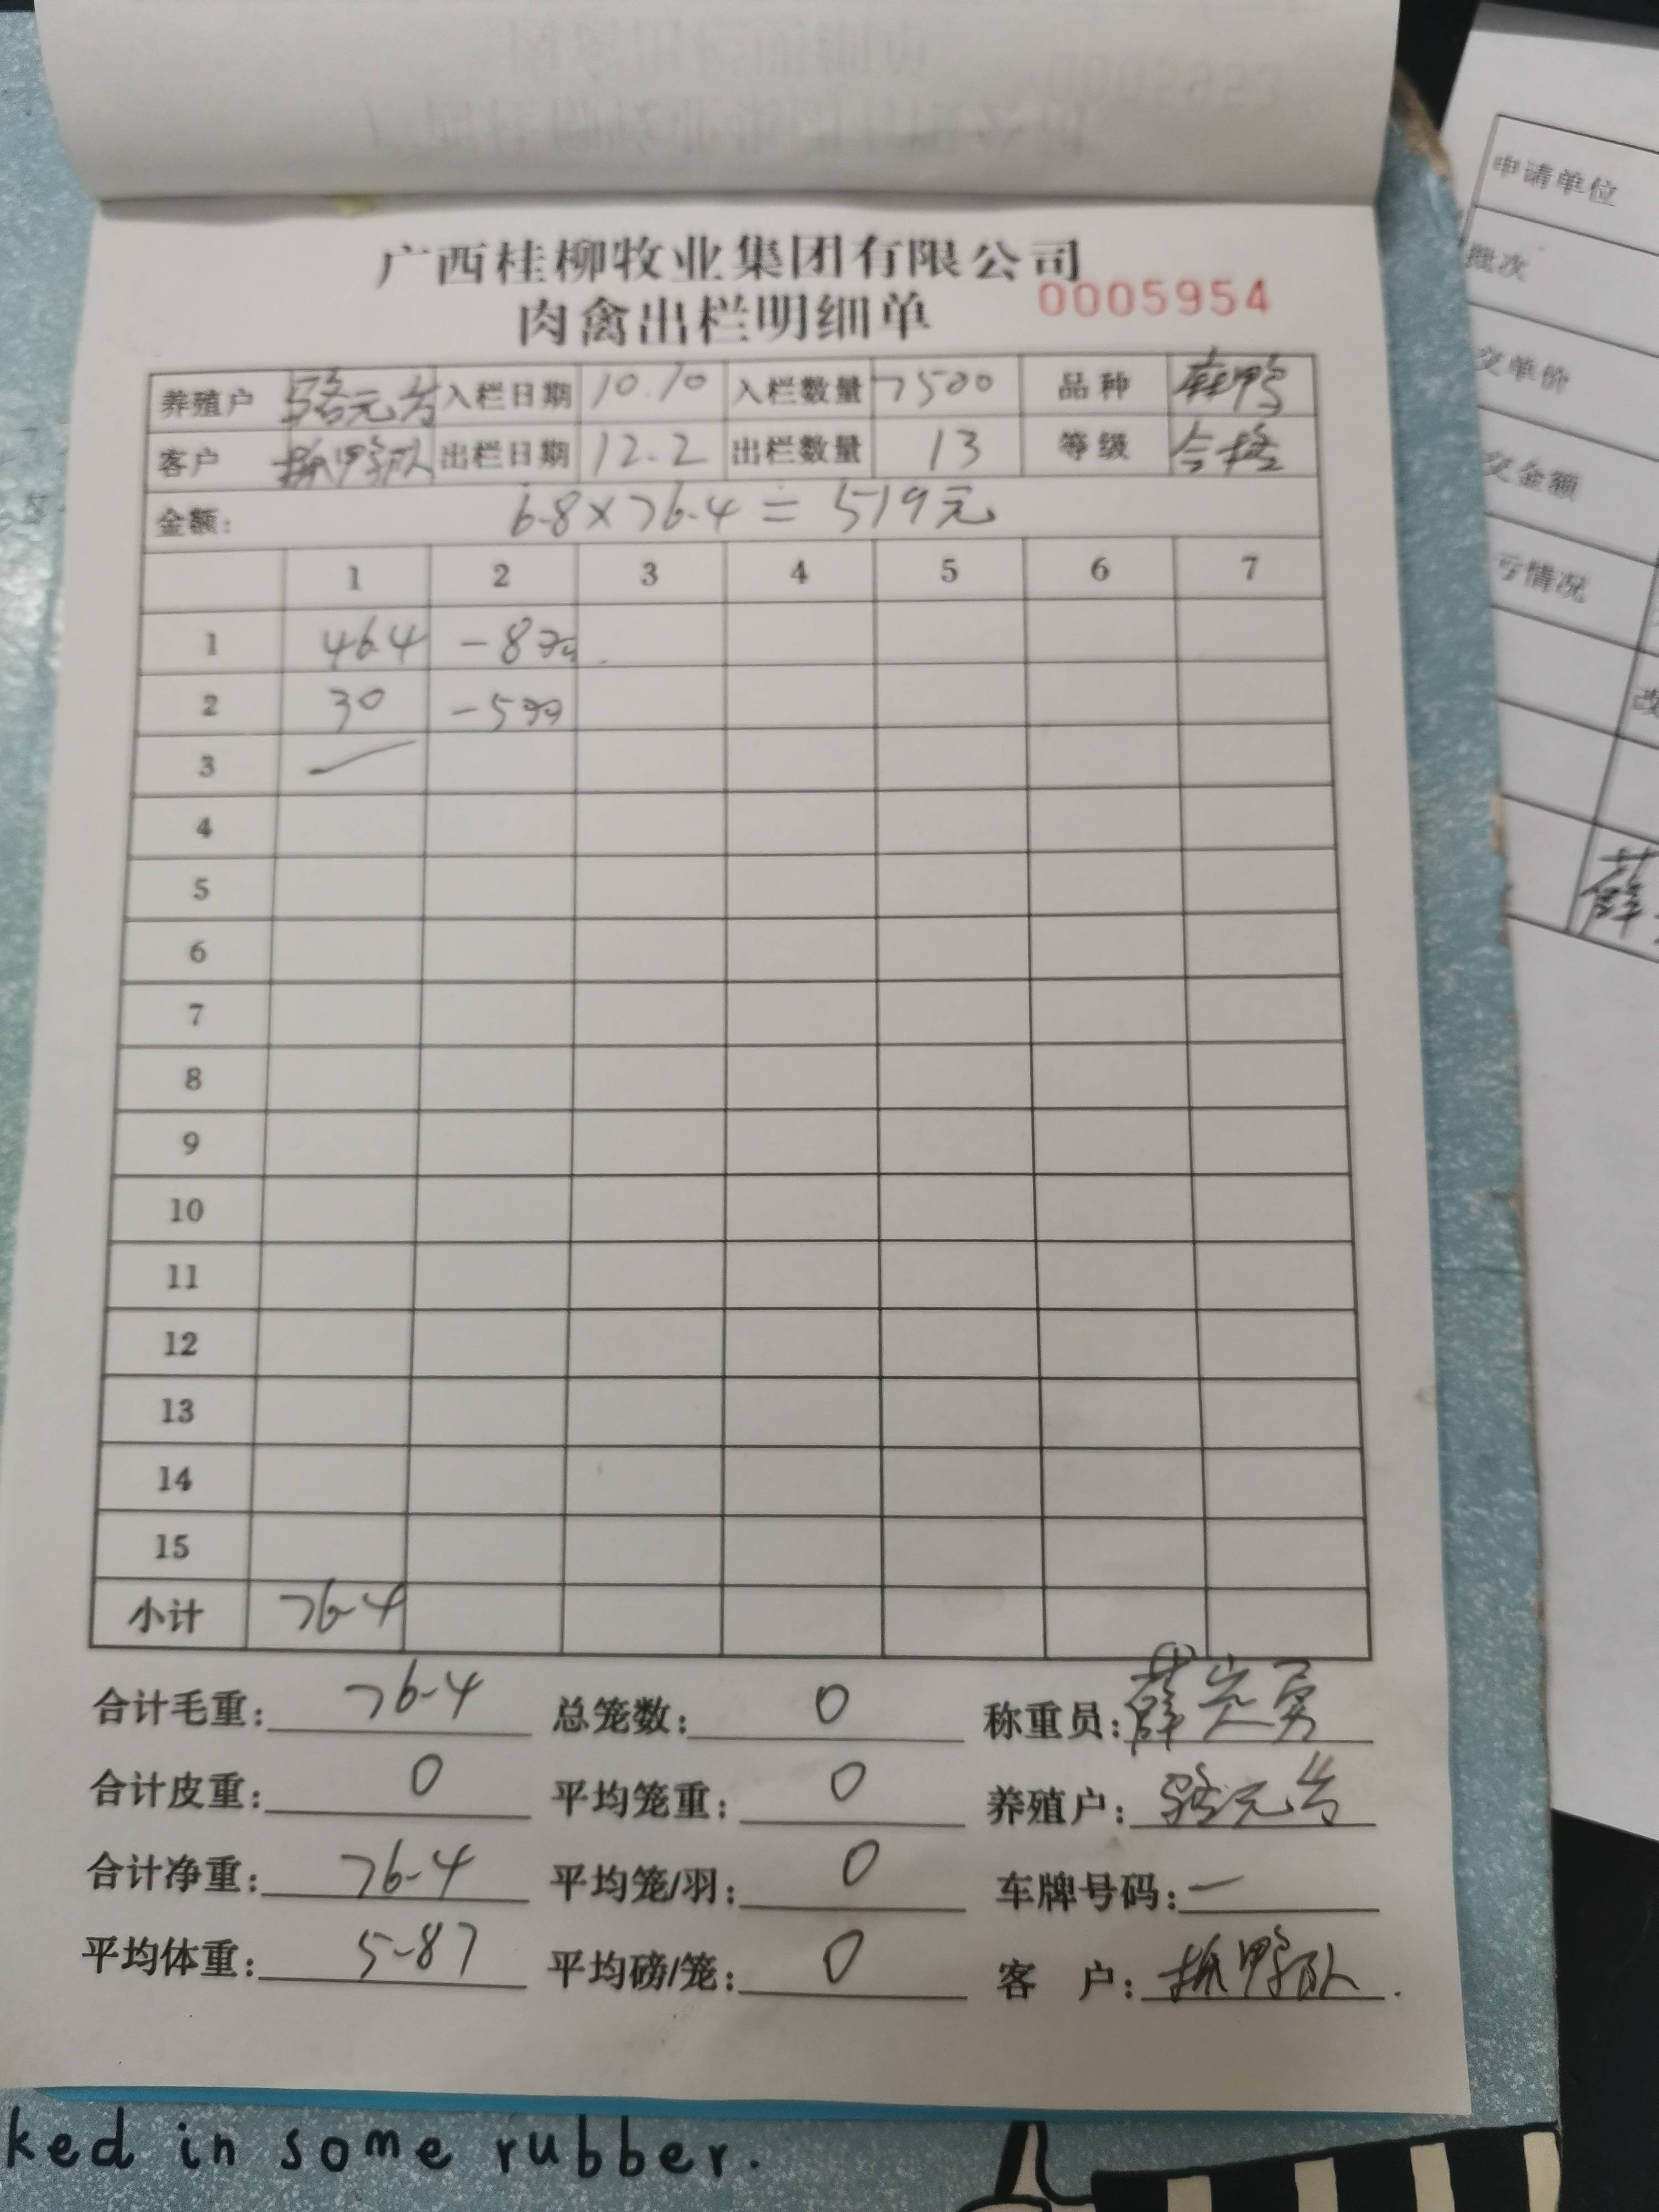 广西桂柳牧业集团有限公司
肉禽出栏明细单 0005954
养殖户 骆元台 入栏日期 10.10 入栏数量 7500 品种 麻鸭
客户 抓鸭队 出栏日期 12.2 出栏数量 13 等级 合格
金额: 6.8×76.4=519元
1 2 3 4 5 6 7
1 46.4 -8只
2 30 -5只
3
4
5
6
7
8
9
10
11
12
13
14
15
小计 76.4
合计毛重: 76.4 总笼数: 0 称重员: 薛
合计皮重: 0 平均笼重: 0 养殖户: 骆元台
合计净重: 76.4 平均笼/羽: 0 车牌号码: 一
平均体重: 5.87 平均磅/笼: 0 客 户: 抓鸭队.
申请单位
批次
交单价
交金额
亏情况
改
薛
ked in some rubber.